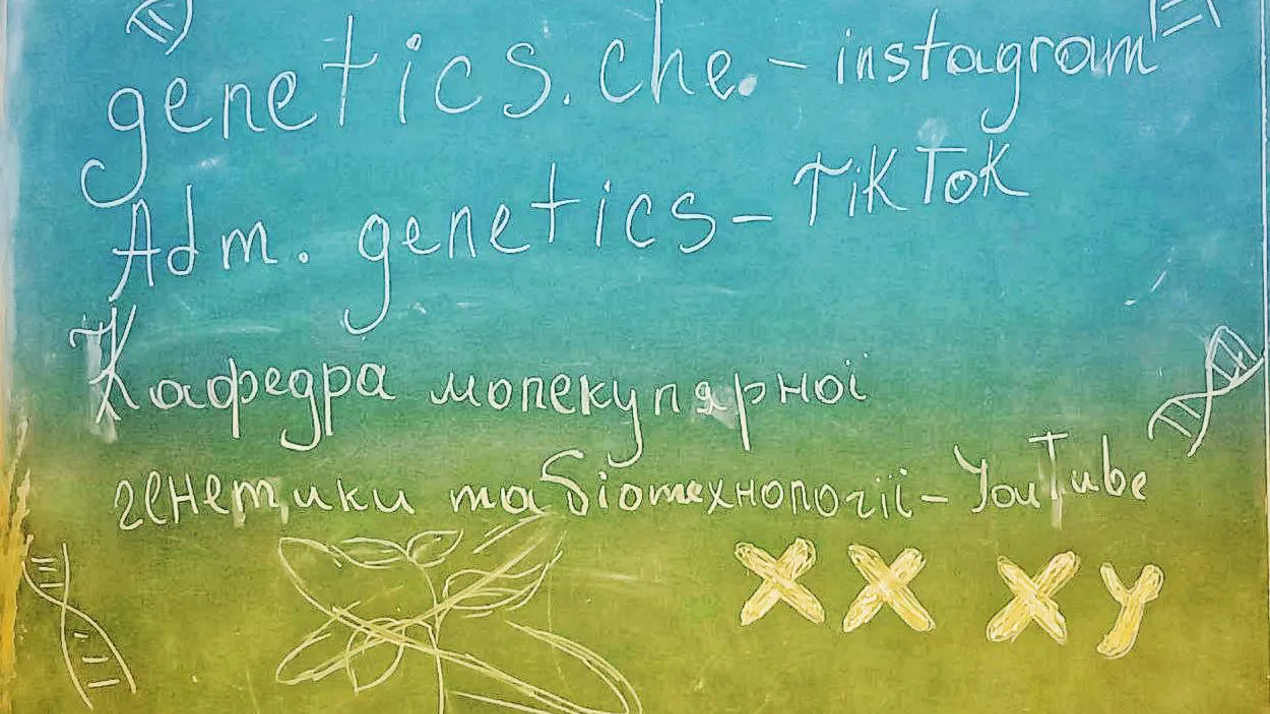 genetics.che. - instagram
Adm. genetics - TikTok
Кафедра молекулярної
генетики та біотехнології - YouTube
XX XY